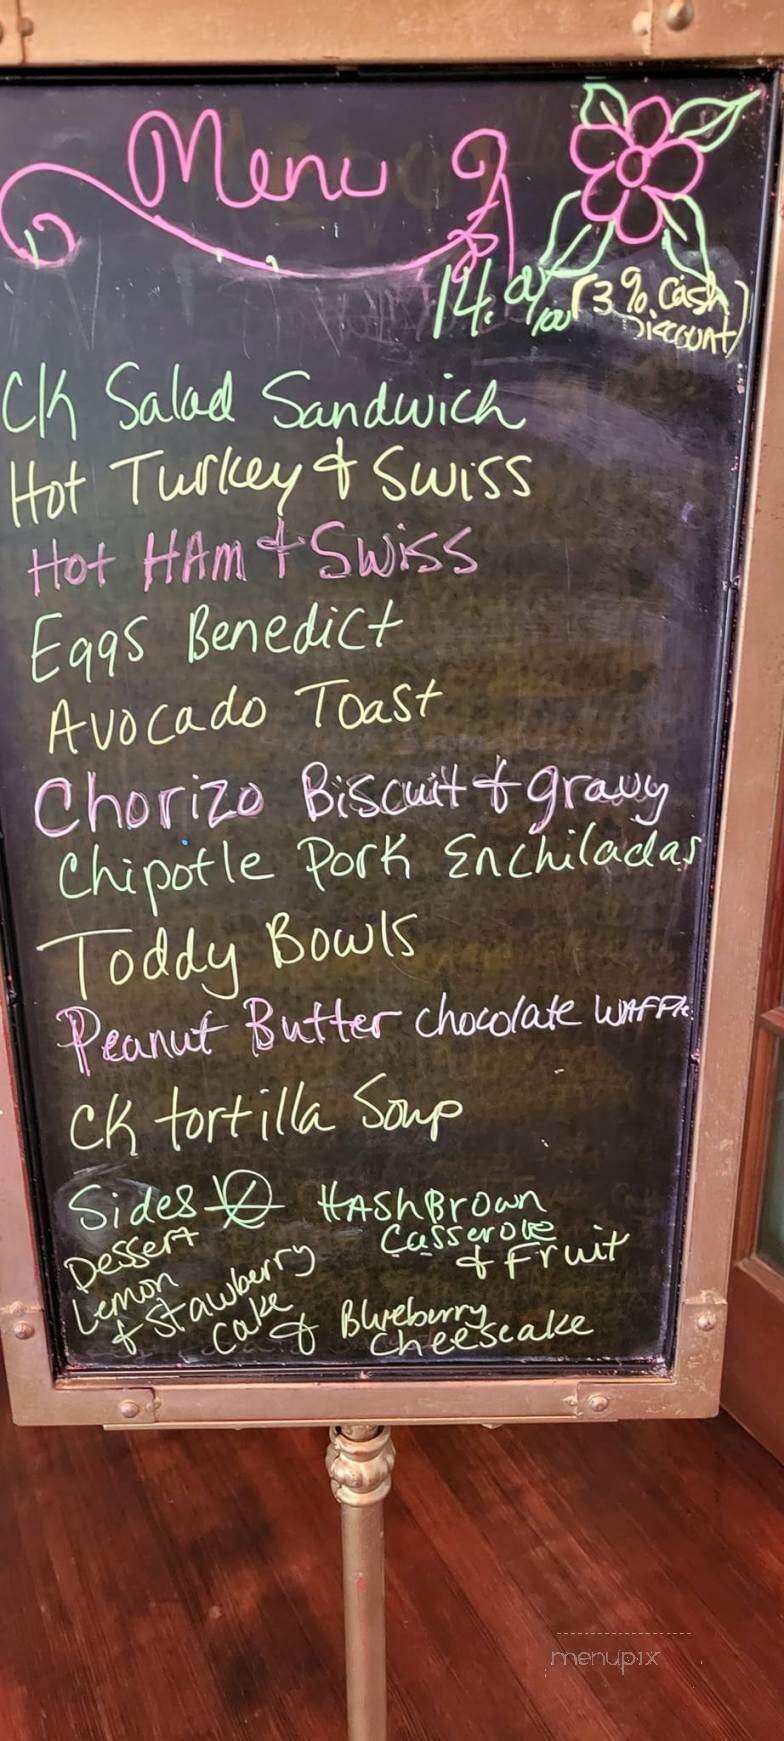 Menu
14.
(3% Cash
DISCOUNT)
CK Salad Sandwich
Hot Turkey & Swiss
Hot HAm & Swiss
Eggs Benedict
Avocado Toast
Chorizo Biscuit & gravy
Chipotle Pork Enchiladas
Toddy Bowls
Peanut Butter chocolate WAFFle
CK tortilla Soup
Sides
HASHBROWN
Casserole
& Fruit
Dessert
Lemon
& Stawberry
Cake
& Blueberry
Cheesecake
menupix